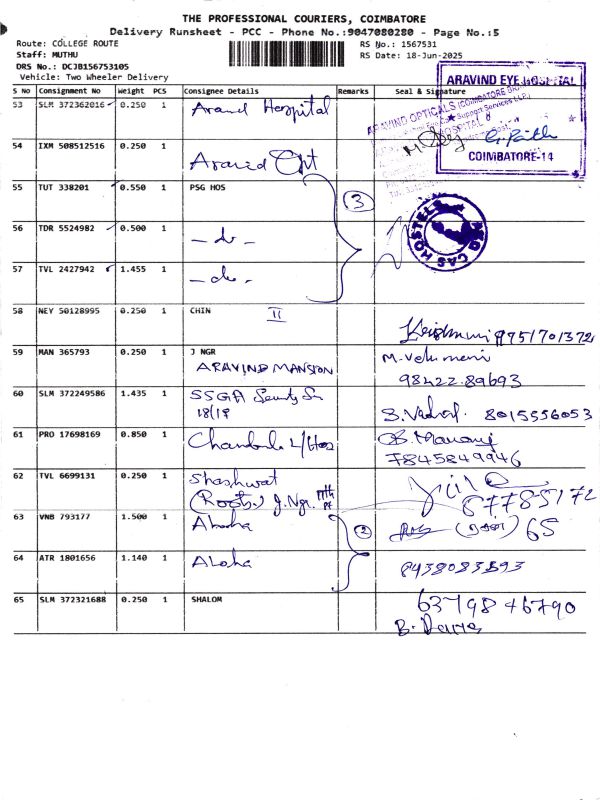 THE PROFESSIONAL COURIERS, COIMBATORE
Delivery Runsheet - PCC - Phone No.:9047080280 - Page No.:5
Route: COLLEGE ROUTE
Staff: MUTHU
DRS No.: DCJB156753105
Vehicle: Two Wheeler Delivery
RS No.: 1567531
RS Date: 18-Jun-2025
S No Consignment No Weight PCS Consignee Details Remarks Seal & Signature
ARAVIND EYE HOSPITAL
COIMBATORE-14
ARAVIND OPTICALS
53 SLM 372362016 0.250 1 Aravind Hospital
54 IXM 508512516 0.250 1 Aravind Opt
55 TUT 338201 0.550 1 PSG HOS
3
PSG CAS HOSTELS
56 TDR 5524982 0.500 1 - do -
57 TVL 2427942 1.455 1 - do -
58 NEY 50128995 0.250 1 CHIN II
59 MAN 365793 0.250 1 J NGR
ARAVIND MANSION
98422.89693
60 SLM 372249586 1.435 1 SSGA
18/19
8015556053
61 PRO 17698169 0.850 1
7845849946
62 TVL 6699131 0.250 1 Shashwat
(Roots) J. Ngr
63 VNB 793177 1.500 1 Aloha
2
65
64 ATR 1801656 1.140 1 Aloha
65 SLM 372321688 0.250 1 SHALOM